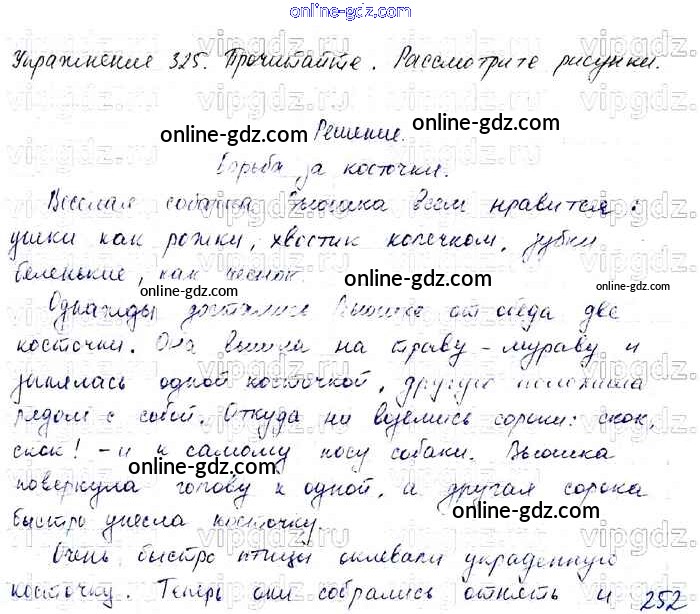 online-gdz.com
Упражнение 325. Прочитайте. Рассмотрите рисунки.
online-gdz.com
Решение.
online-gdz.com
Борьба за косточки.
Веселая собачка Вьюшка всем нравится:
ушки как рожки, хвостик колечком, зубки
беленькие, как чеснок.
online-gdz.com
Однажды достались Вьюшке от обеда две
косточки. Она вышла на траву-мураву и
занялась одной косточкой, другую положила
рядом с собой. Откуда ни взялись сороки: скок,
скок! - и к самому носу собаки. Вьюшка
online-gdz.com
повернула голову к одной, а другая сорока
быстро унесла косточку.
Очень быстро птицы оклевали украденную
косточку. Теперь они собрались отнять и
252